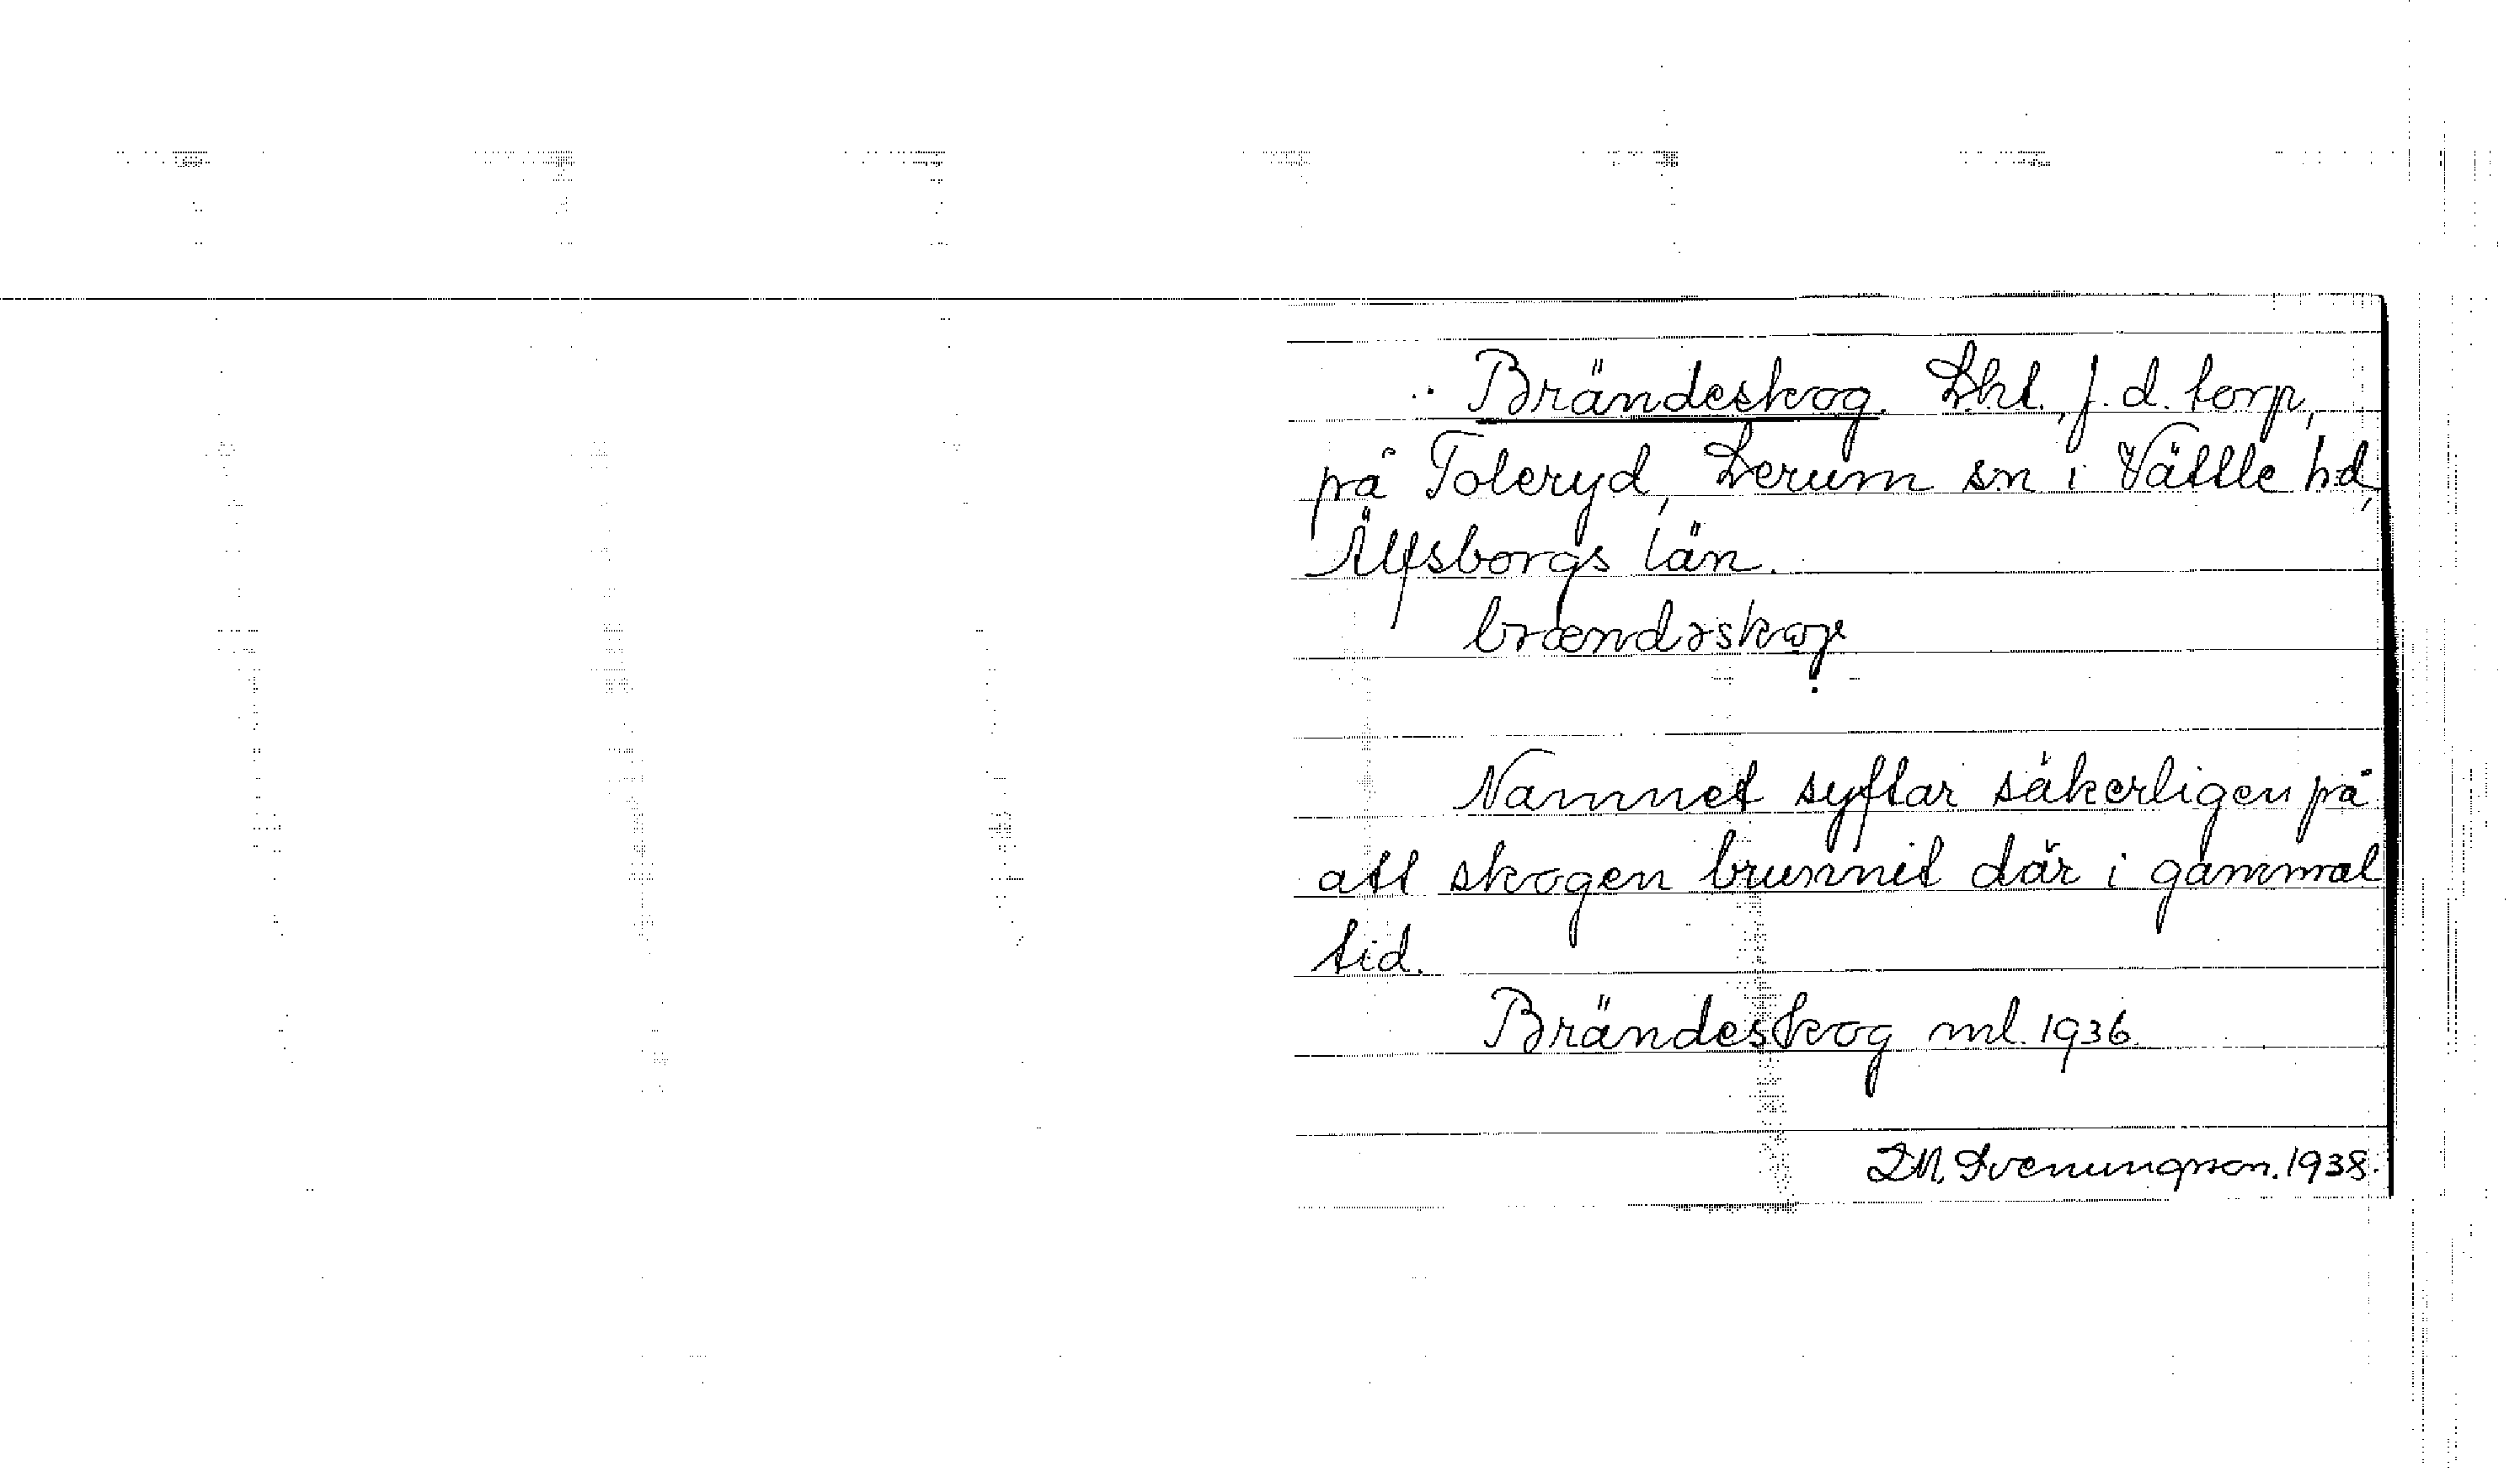 Brändeskog. Lht., f.d. torp,
på Toleryd, Lerum sn i Vättle hd,
Älfsborgs län.
brændəskog
Namnet syftar säkerligen på
att skogen brunnit där i gammal
tid.
Brändeskog ml. 1936.
Svenungsson. 1938.